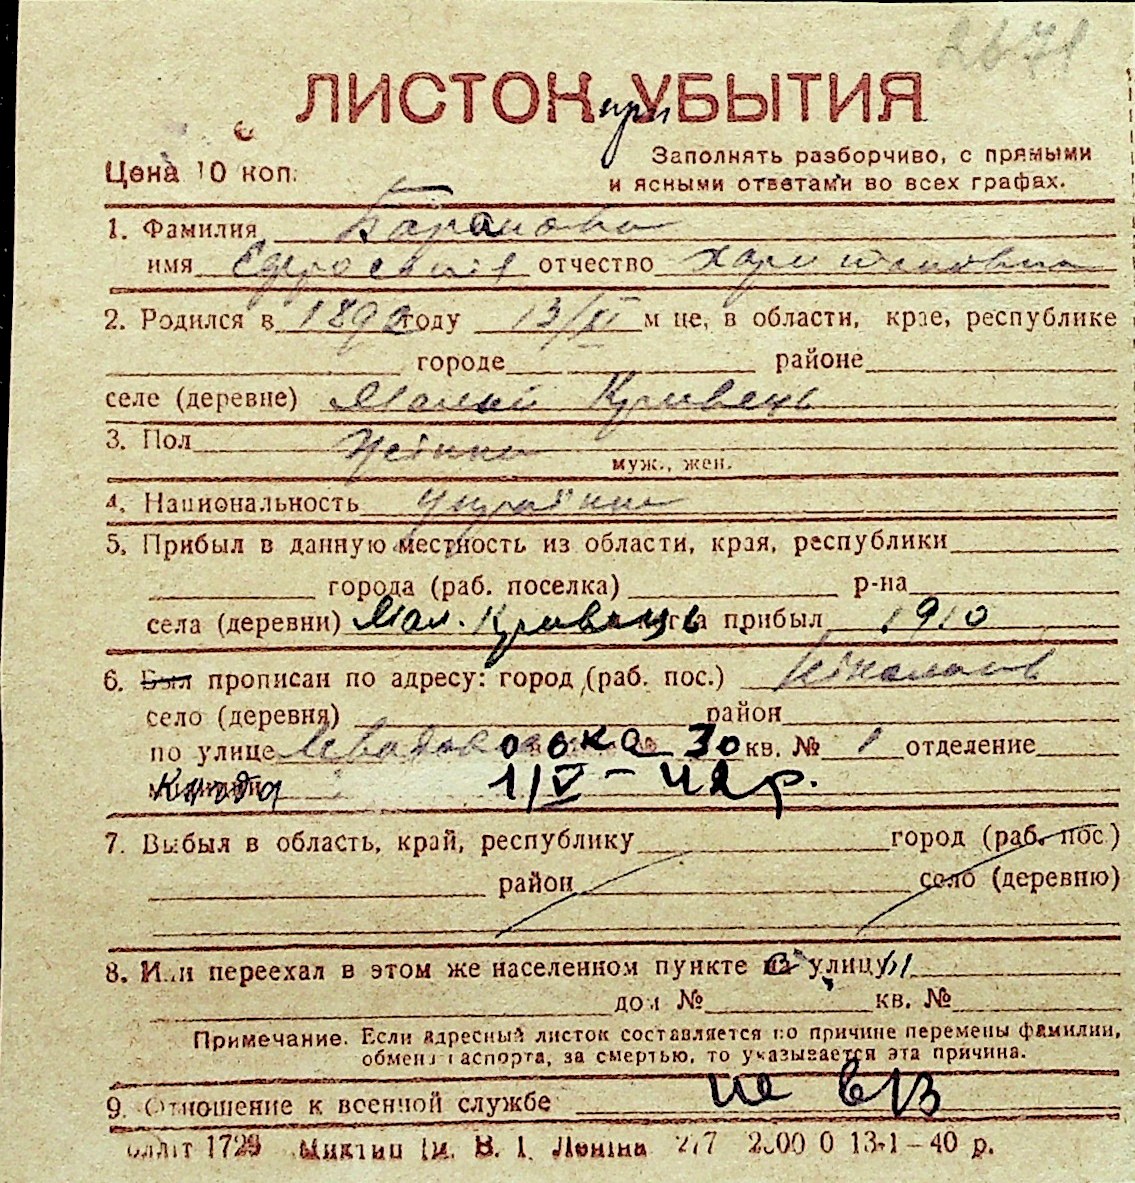 2671
ЛИСТОК при УБЫТИЯ
Цена 10 коп.
Заполнять разборчиво, с прямыми
и ясными ответами во всех графах.
1. Фамилия Баранова
имя Ефросинія отчество Харитоновна
2. Родился в 1892 году 13/XI м це, в области, крае, республике
городе районе
селе (деревне) Малый Кривець
3. Пол
муж., жен.
4. Национальность
5. Прибыл в данную местность из области, края, республики
города (раб. поселка) р-на
села (деревни) Мал. Кривець прибыл 1910
6. Был прописан по адресу: город (раб. пос.) Ніколаев
село (деревня) район
по улице овка 30 кв. № 1 отделение
1/V – 42 р.
7. Выбыл в область, край, республику город (раб. пос.)
район село (деревню)
8. Или переехал в этом же населенном пункте с улицы
дом № кв. №
Примечание. Если адресный листок составляется по причине перемены фамилии,
обмена паспорта, за смертью, то указывается эта причина.
9. Отношение к военной службе не в/з
1729 ім. В. І. Леніна 277 2000 0 13-1–40 р.